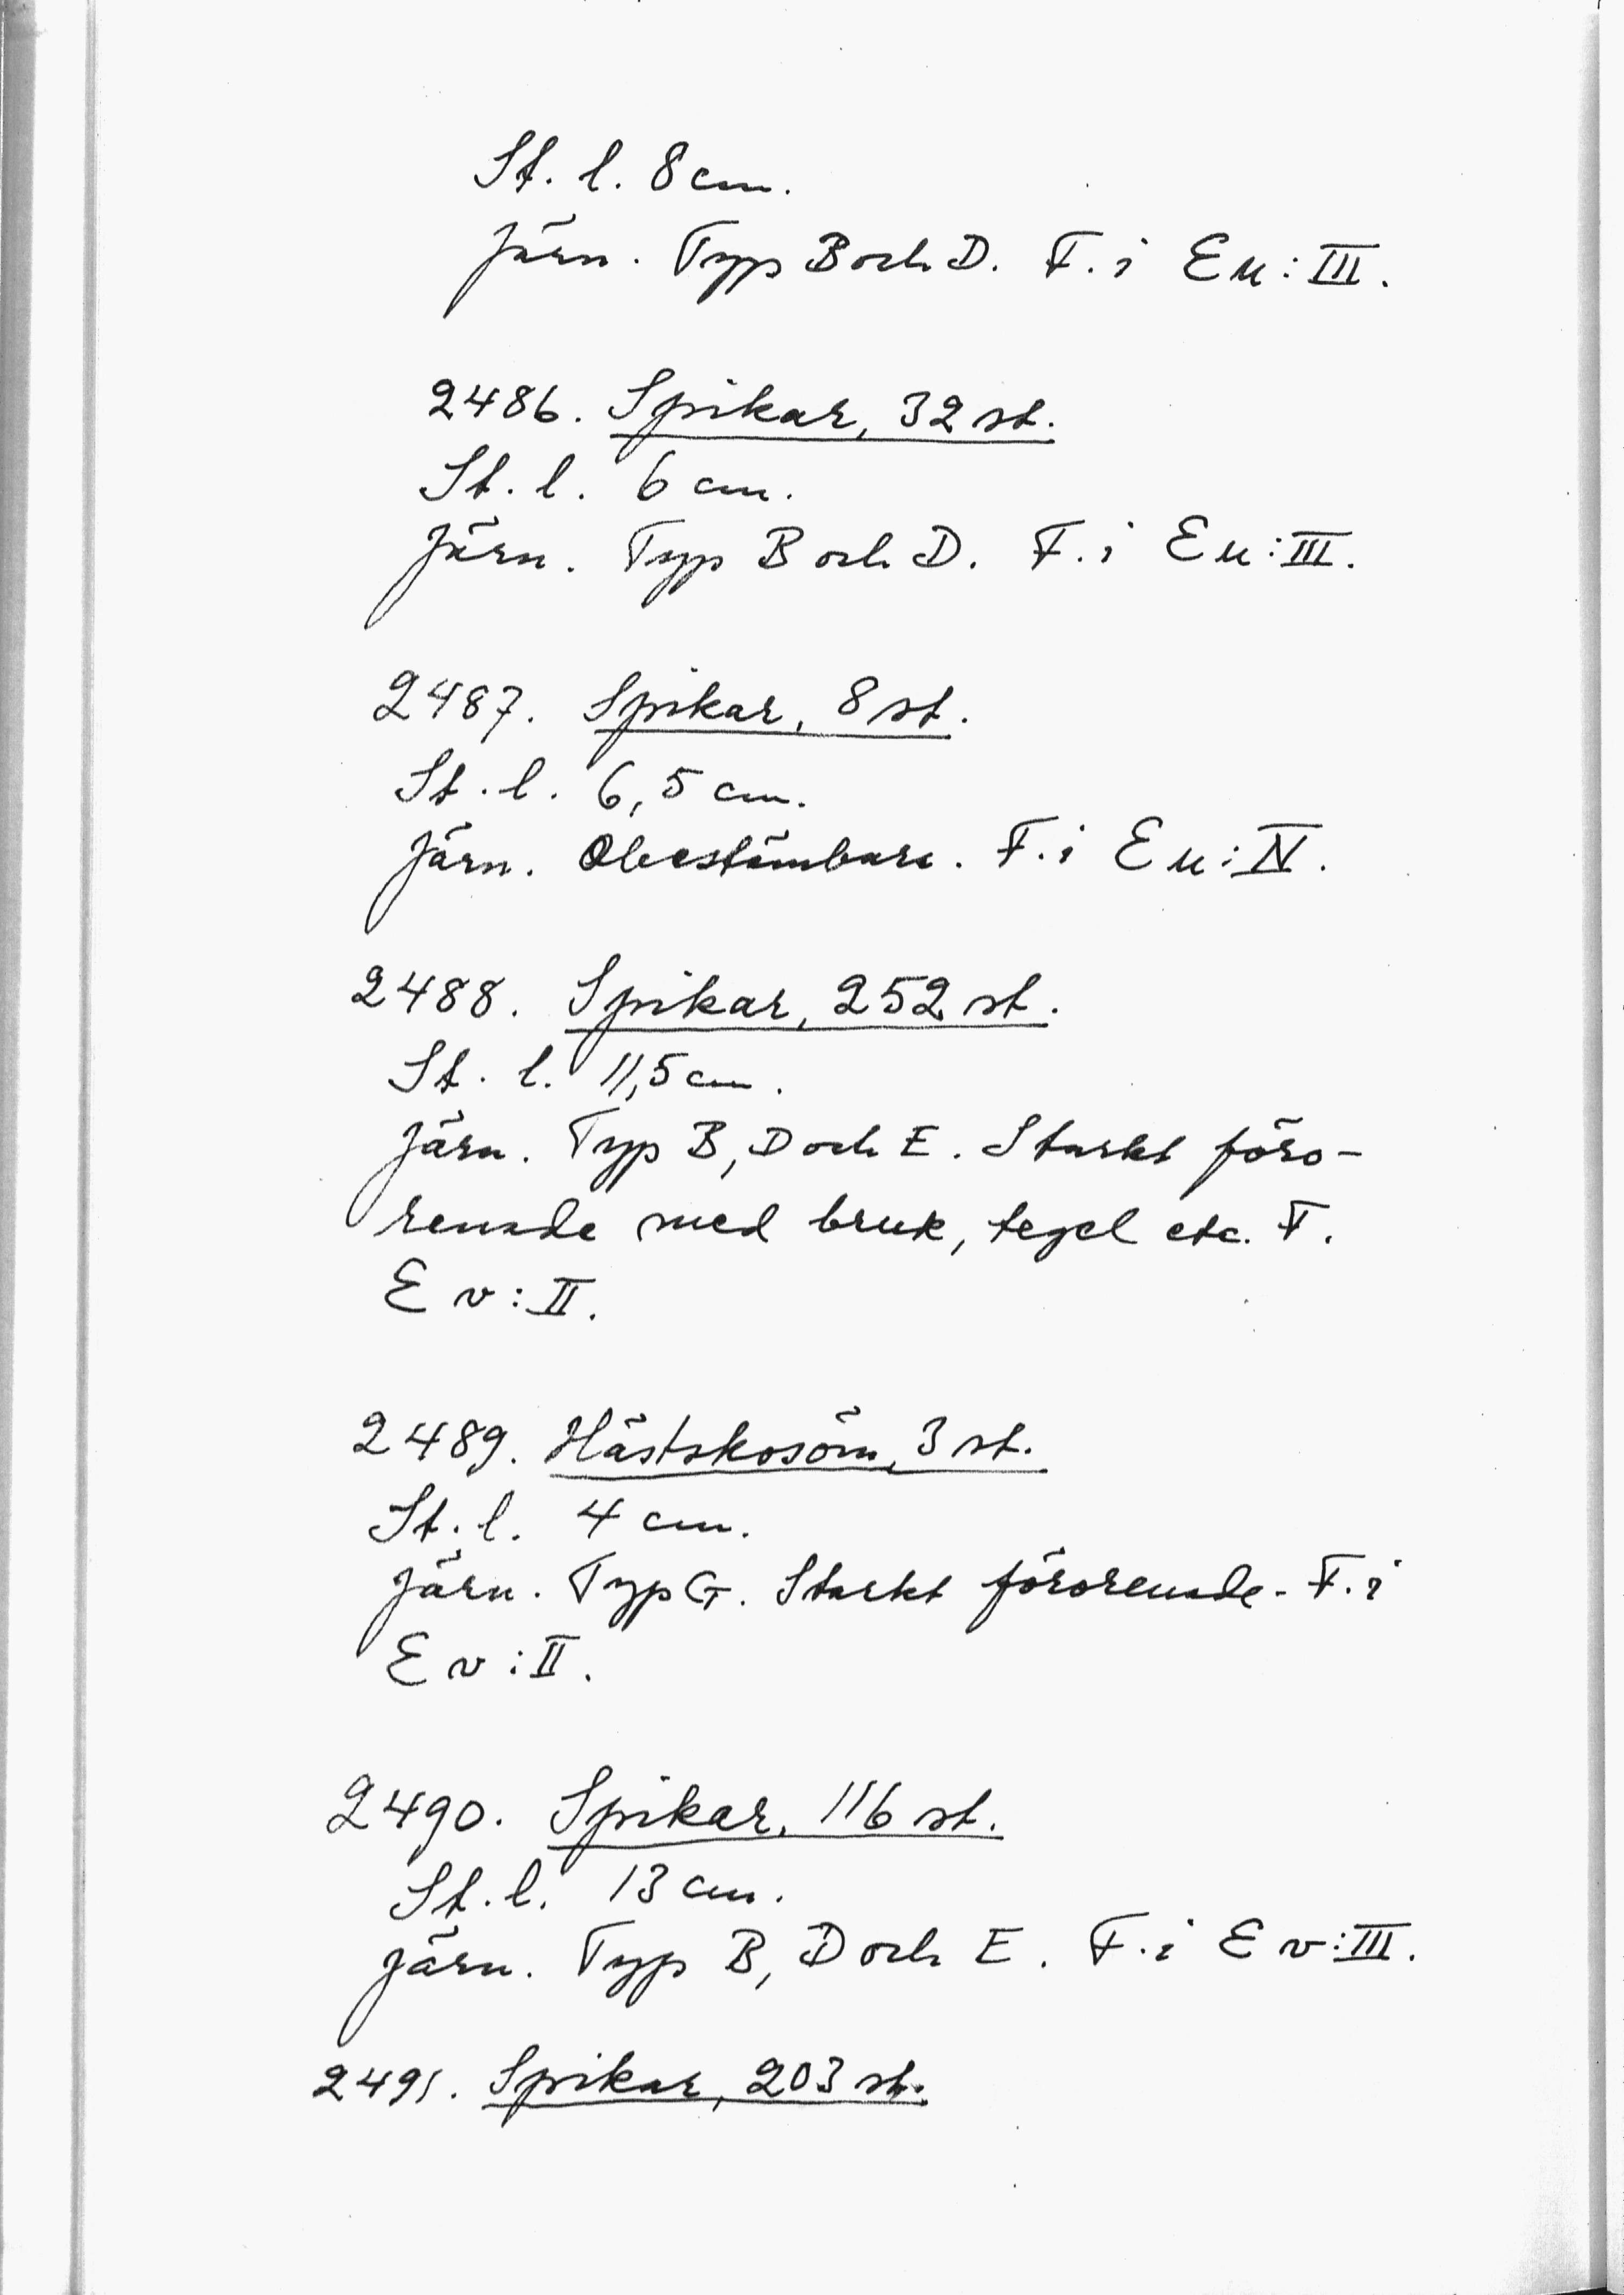 St. l. 8 cm.
Järn. Typ B och D. F. i E u: III.
2486. Spikar, 32 st.
St. l. 6 cm.
Järn. Typ B och D. F. i E u: III.
2487. Spikar, 8 st.
St. l. 6,5 cm.
Järn. Obestämbara. F. i E u: IV.
2488. Spikar, 252 st.
St. l. 11,5 cm.
Järn. Typ B, D och E. Starkt föro-
renade med bruk, tegel etc. F.
E v: II.
2489. Hästskosöm, 3 st.
St. l. 4 cm.
Järn. Typ G. Starkt förorenade. F. i
E v: II.
2490. Spikar, 116 st.
St. l. 13 cm.
Järn. Typ B, D och E. F. i E v: III.
2491. Spikar, 203 st.